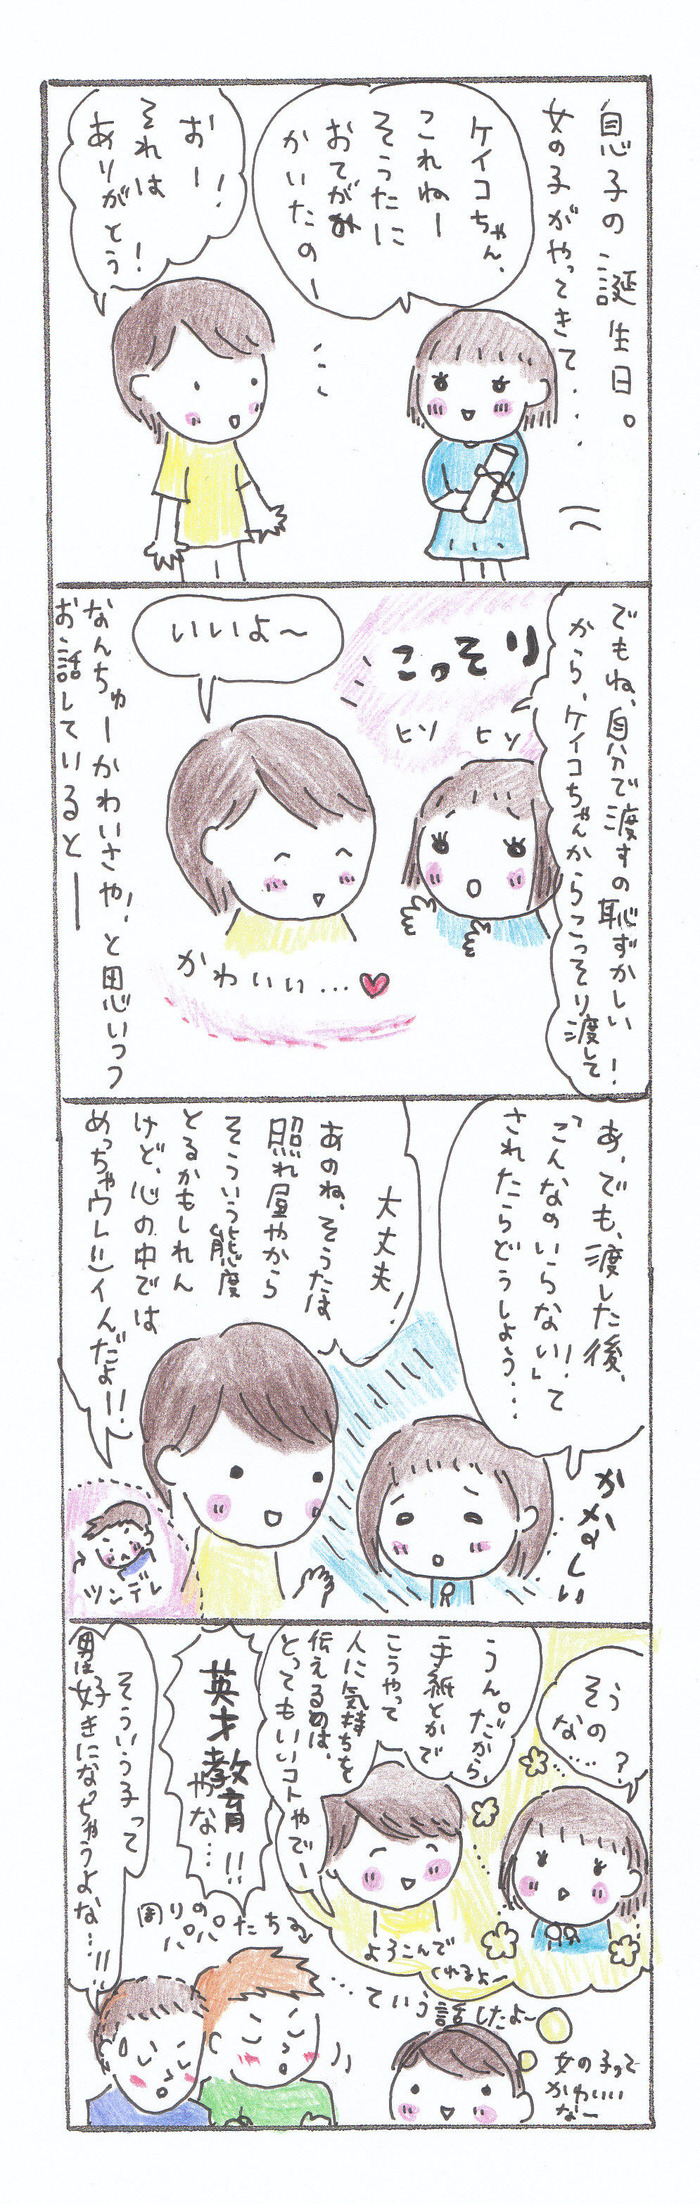 息子の誕生日。
女の子がやってきて・・・
ケイコちゃん、
これねー
そうたに
おてがみ
かいたのー
おー！
それは
ありがとう！
でもね、自分で渡すの恥ずかしい！
から、ケイコちゃんからこっそり渡して
こっそり
ヒソ ヒソ
いいよ〜
かわいい…
なんちゅーかわいさや！、と思いつつ
お話していると――
あ、でも、渡した後、
「こんなのいらない」！って
されたらどうしよう…
かなしい
大丈夫！
あのね、そうたは
照れ屋やから
そういう態度
とるかもしれん
けど、心の中では
めっちゃウレシイんだよ!!
ツンデレ
そう
なの
…？
うん。だから、
手紙とかで
こうやって
人に気持ちを
伝えるのは、
とってもいいコトやでー
よろこんで
くれるよ〜
英才教育
やな…!!
周りの
パパたち
そういう子って
男は好きになっちゃうよな…!!
…ていう話したよ〜
女の子って
かわいい
なー